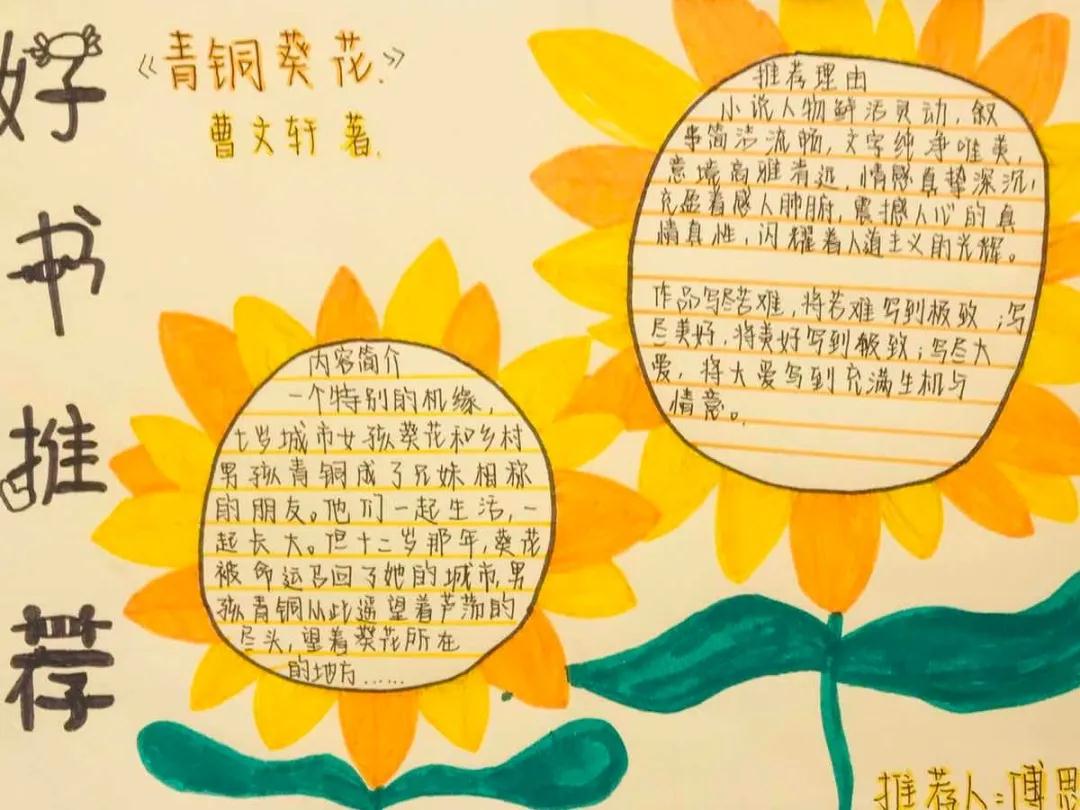 好书推荐
《青铜葵花》
曹文轩 著.
内容简介
一个特别的机缘，
七岁城市女孩葵花和乡村
男孩青铜成了兄妹相称
的朋友。他们一起生活，一
起长大。但十二岁那年，葵花
被命运召回了她的城市，男
孩青铜从此遥望着芦荡的
尽头，望着葵花所在
的地方……
推荐理由
小说人物鲜活灵动，叙
事简洁流畅，文字纯净唯美，
意境高雅清远，情感真挚深沉，
充盈着感人肺腑，震撼人心的真
情真性，闪耀着人道主义的光辉。
作品写尽苦难，将苦难写到极致；写
尽美好，将美好写到极致；写尽大
爱，将大爱写到充满生机与
情意。
推荐人：傅思